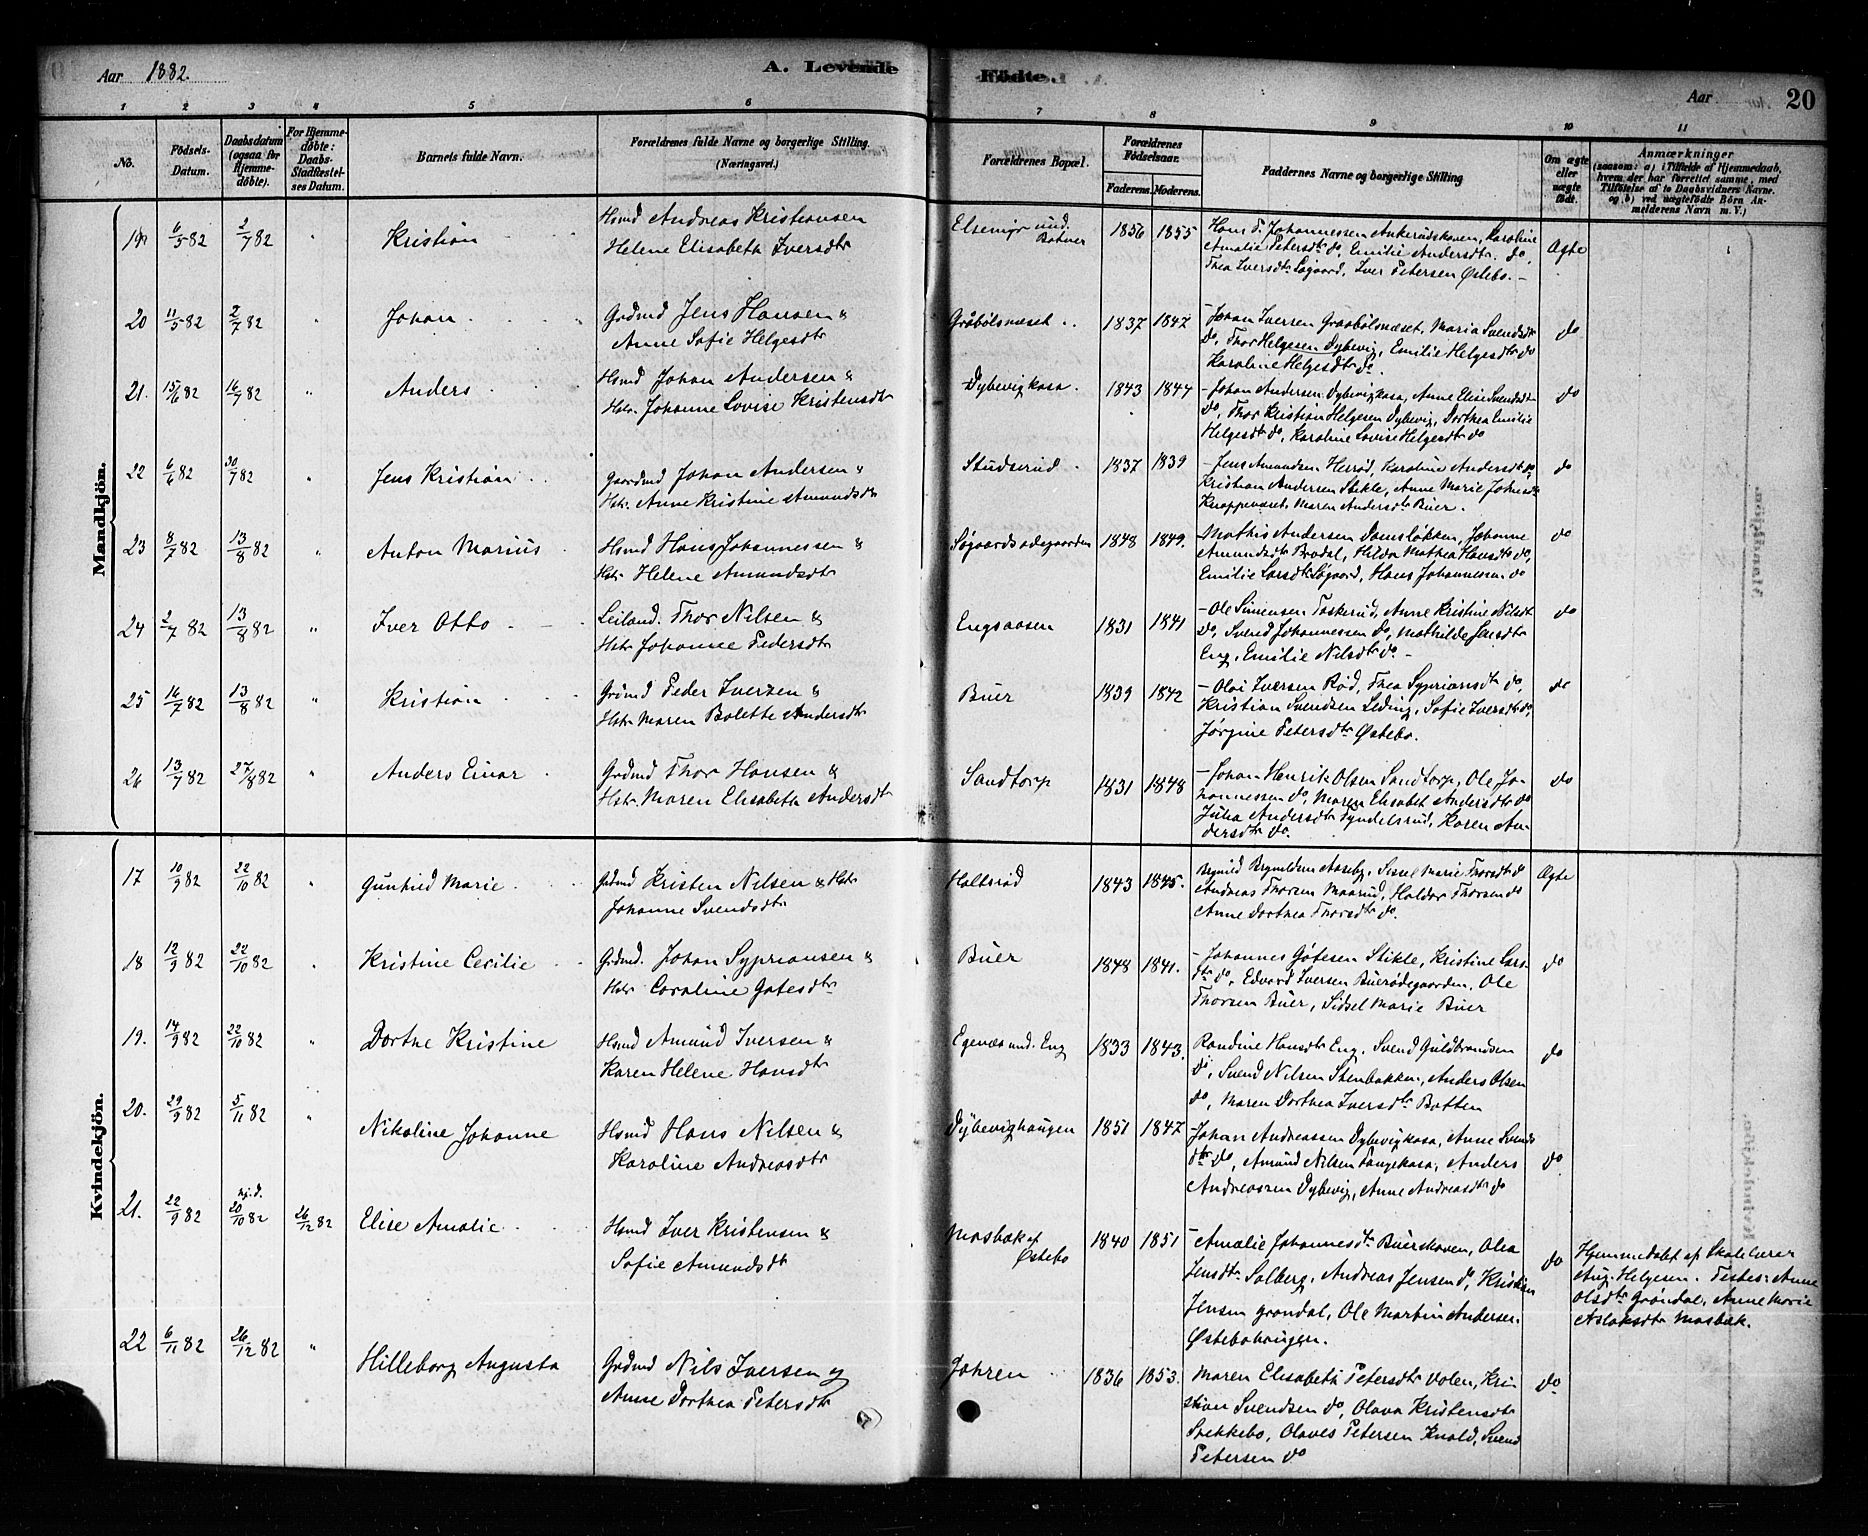 Aar 1882.
A. Levende
Födte.
Aar
20
1 2 3 4 5 6 7 8 9 10 11
No.
Födsels-
Datum.
Daabsdatum
(ogsaa for
Hjemme-
döbte).
For Hjemme-
döbte:
Daabs-
Stadfæstel-
ses Datum.
Barnets fulde Navn.
Forældrenes fulde Navne og borgerlige Stilling.
(Næringsvei.)
Forældrenes Bopæl.
Forældrenes
Födselsaar.
Faderens. Moderens.
Faddernes Navne og borgerlige Stilling
Om ægte
eller
uægte
födt.
Anmærkninger
(saasom: a) i Tilfælde af Hjemmedaab,
hvem der har forrettet samme, med
Tilföielse af to Daabsvidners Navne.
og b) ved uægtefödte Börn An-
melderens Navn m. V.)
Mandkjön.
19 6/5 82 2/7 82 " Kristian
Hsmd Andreas Kristiansen
Helene Elisabeth Iversdtr
1856 1855
Hans T. Johannessen Ankerudskoven, Karoline
Amalie Petersdtr do, Emilie Andersdtr. do,
Thea Iversdtr Søgaard, Iver Petersen Østebo. -
Ægte
20 11/5 82 2/7 82 " Johan
Grdmd Jens Hansen &
Anne Sofie Helgesdtr
Gråbølsnæset
1837 1847
- Johan Iversen Graabølsnæset, Maria Svendsdtr
do, Thor Helgesen Dybevig, Emilie Helgesdtr do
Karoline Helgesdtr do.
do
21. 15/6 82 16/7 82 " Anders
Hsmd Johan Andersen &
Hstr. Johanne Lovise Kristensdtr
Dybevigkasa.
1843 1844
- Johan Andersen Dybevigkasa, Anne Elise Svendsdtr
do, Thor Kristian Helgesen Dybevig, Dorthea Emilie
Helgesdtr do, Karoline Lovise Helgesdtr do
do
22 6/6 82 30/7 82 " Jens Kristian
Gaardmd Johan Andersen &
Hstr. Anne Kristine Amundsdtr
Studserud
1837 1839
- Jens Amundsen Herrød, Karoline Andersdtr do,
Kristian Andersen Stikle, Anne Marie Johnsdtr
Knappenæset, Maren Andersdtr Buer.
do
23 8/7 82 13/8 82 " Anton Marius
Hsmd Hans Johannessen &
Hstr. Helene Amundsdtr
Søgaardsødegaarden
1848 1849.
- Mathis Andersen Damsløkken, Johanne
Amundsdtr Brødal, Hilda Mathea Hansdtr do,
Emilie Larsdtr Søgaard, Hans Johannessen do
do
24 2/7 82 13/8 82 " Iver Otto
Leiland. Thor Nilsen &
Hstr Johanne Pedersdtr
Engsaasen
1831 1841
- Ole Simensen Taskerud, Anne Kristine Nilsdt
do, Svend Johannessen do, Mathilde Jensdtr
Eng, Emilie Nilsdtr do -
do
25 16/7 82 13/8 82 " Kristian
Grdmd Peder Iversen &
Hstr Maren Bolette Andersdtr
Buer
1839 1842
- Olai Iversen Rød, Thea Sypriansdtr do,
Kristian Svendsen Leding, Sofie Iversdtr do,
Jørgine Petersdtr Østebo.
do
26 13/7 82 27/8 82 " Anders Einar
Grdmd Thor Hansen &
Hstr. Maren Elisabeth Andersdtr
Sandtorp
1831 1848
- Johan Henrik Olsen Sandtorp, Ole Jo-
hannessen do, Maren Elisabet Andersdtr do
Julia Andersdtr Tyndelsrud, Karen An-
dersdtr do.
do
Kvindekjön.
17 10/9 82 22/10 82 " Gunhild Marie
Grdmd Kristen Nilsen & Hstr
Johanne Svendsdtr
Holtsrød
1843 1845.
Brynild Brynildsen Aaseby, Sissel Marie Thorsdtr do
Andreas Thorsen Maarud, Haldor Thorsen do
Anne Dorthea Thorsdtr do.
Ægte
18 12/9 82 22/10 82 " Kristine Cecilie
Grdmd. Johan Syprionsen &
Hstr Caroline Gøtesdtr
Buer
1848 1841.
- Johannes Gøtesen Stikle, Kristine Lars-
dtr do, Edvard Iversen Buerødegaarden, Ole
Thorsen Buer, Sidsel Marie Buer
do
19. 14/9 82 22/10 82 " Dorthe Kristine
Hsmd Amund Iversen &
Karen Helene Hansdtr
Egenæs und. Eng
1833 1843.
Randine Hansdtr Eng, Svend Guldbrandsen
do, Svend Nilsen Stenbakken, Anders Olsen
do, Maren Dorthea Iversdtr Batten
do
20. 29/9 82 5/11 82 " Nikoline Johanne
Hsmd Hans Nilsen &
Karoline Andreasdtr
Dybevighaugen
1851 1847
- Johan Andreassen Dybevigkasa, Anne Svends
dtr do, Amund Nilsen Tangekasa, Anders
Andreassen Dybevig, Anne Andreasdtr do
do
21. 22/9 82 hj. d. 20/10 82 26/12 82 Elise Amalie
Hsmd Iver Kristensen &
Sofie Amundsdt
Mosbæk af
Østebo
1840 1851
- Amalie Johannesdtr Buerskoven, Olea
Jensdtr Solberg, Andreas Jensen do, Kristian
Jensen Grøndal, Ole Martin Andersen
Østebohaugen.
do
Hjemmedøbt af Skolelærer
Aug. Helgesen. Testes: Anne
Olsdtr Grøndal, Anne Marie
Aslaksdtr Mosbæk.
22 6/11 82 26/12 82 " Hilleborg Augusta
Grdmd Nils Iversen &
Anne Dorthea Petersdtr
1836 1853.
Maren Elisabeth Petersdtr Volen, Kri-
stian Svendsen do, Olava Kristensdtr
Spekkebo, Olaves Petersen Knold, Svend
Petersen do
do